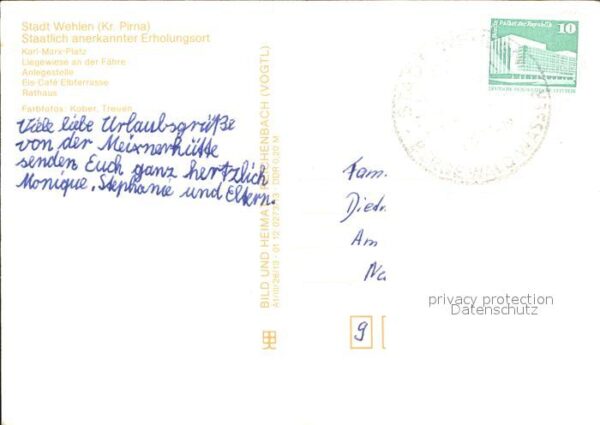 Stadt Wehlen (Kr. Pirna)
Staatlich anerkannter Erholungsort
Karl-Marx-Platz
Liegewiese an der Fähre
Anlegestelle
Eis-Café Elbterrasse
Rathaus
Farbfotos: Kober, Treuen
Viele liebe Urlaubsgrüße
von der Meixnerhütte
senden Euch ganz hertzlich
Monique, Stephanie und Eltern.
BILD UND HEIMAT REICHENBACH (VOGTL)
DDR 0,20 M
Palast der Republik
10
Fam.
Died
Am
Na
9
privacy protection
Datenschutz